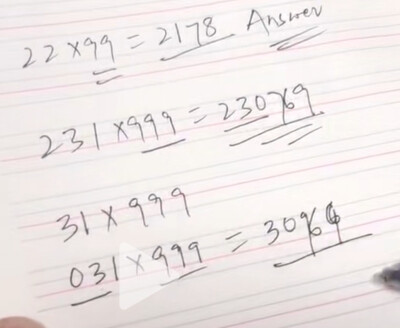 22×99 = 2178 Answer
231×999 = 230769
31×999
031×999 = 30969